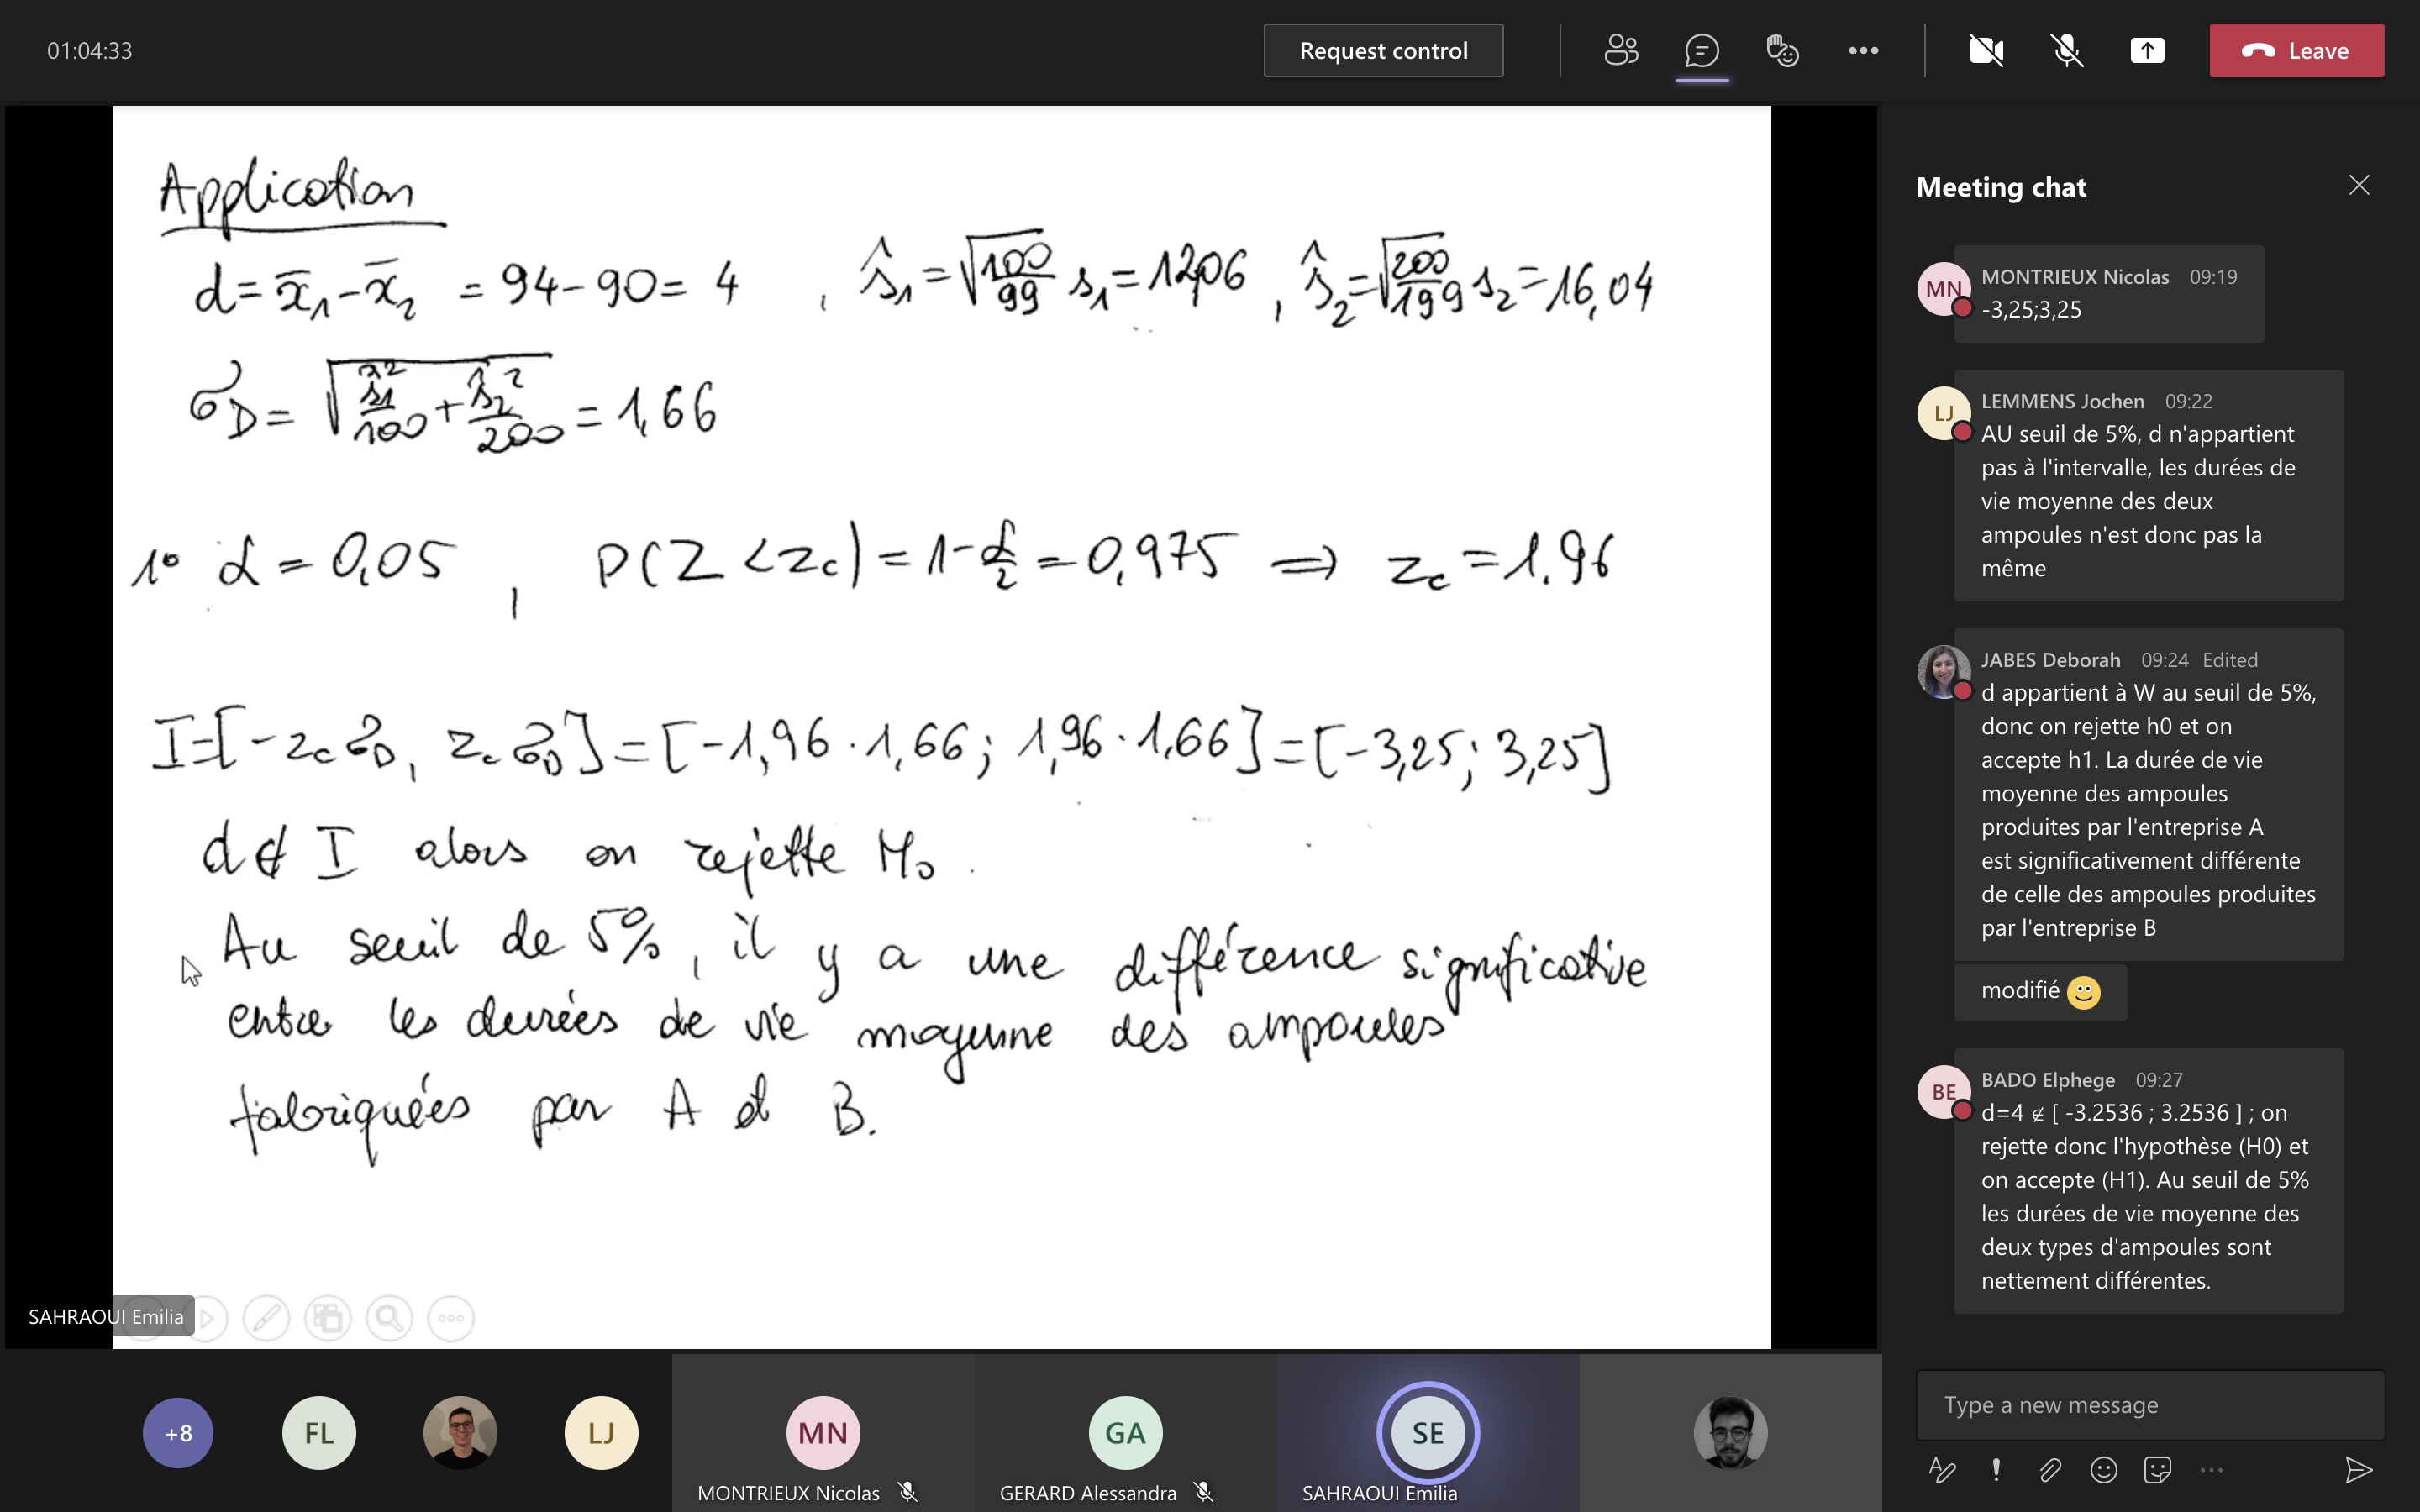 01:04:33
Request control
Leave
Application
d = x̄₁ - x̄₂ = 94 - 90 = 4 , ŝ₁ = √(100/99) s₁ = 1206 , ŝ₂ = √(200/199) s₂ = 16,04
σ̂_D = √(ŝ₁²/100 + ŝ₂²/200) = 1,66
1° α = 0,05 , P(Z < z_c) = 1 - α/2 = 0,975 ⟹ z_c = 1.96
I = [-z_c σ̂_D , z_c σ̂_D] = [-1,96 · 1,66 ; 1,96 · 1,66] = [-3,25 ; 3,25]
d ∉ I alors on rejette H₀ .
Au seuil de 5% , il y a une différence significative
entre les durées de vie moyenne des ampoules
fabriquées par A et B.
SAHRAOUI Emilia
+8
FL
LJ
MN
MONTRIEUX Nicolas
GA
GERARD Alessandra
SE
SAHRAOUI Emilia
Meeting chat
MN
MONTRIEUX Nicolas 09:19
-3,25;3,25
LJ
LEMMENS Jochen 09:22
AU seuil de 5%, d n'appartient
pas à l'intervalle, les durées de
vie moyenne des deux
ampoules n'est donc pas la
même
JABES Deborah 09:24 Edited
d appartient à W au seuil de 5%,
donc on rejette h0 et on
accepte h1. La durée de vie
moyenne des ampoules
produites par l'entreprise A
est significativement différente
de celle des ampoules produites
par l'entreprise B
modifié
BE
BADO Elphege 09:27
d=4 ∉ [ -3.2536 ; 3.2536 ] ; on
rejette donc l'hypothèse (H0) et
on accepte (H1). Au seuil de 5%
les durées de vie moyenne des
deux types d'ampoules sont
nettement différentes.
Type a new message